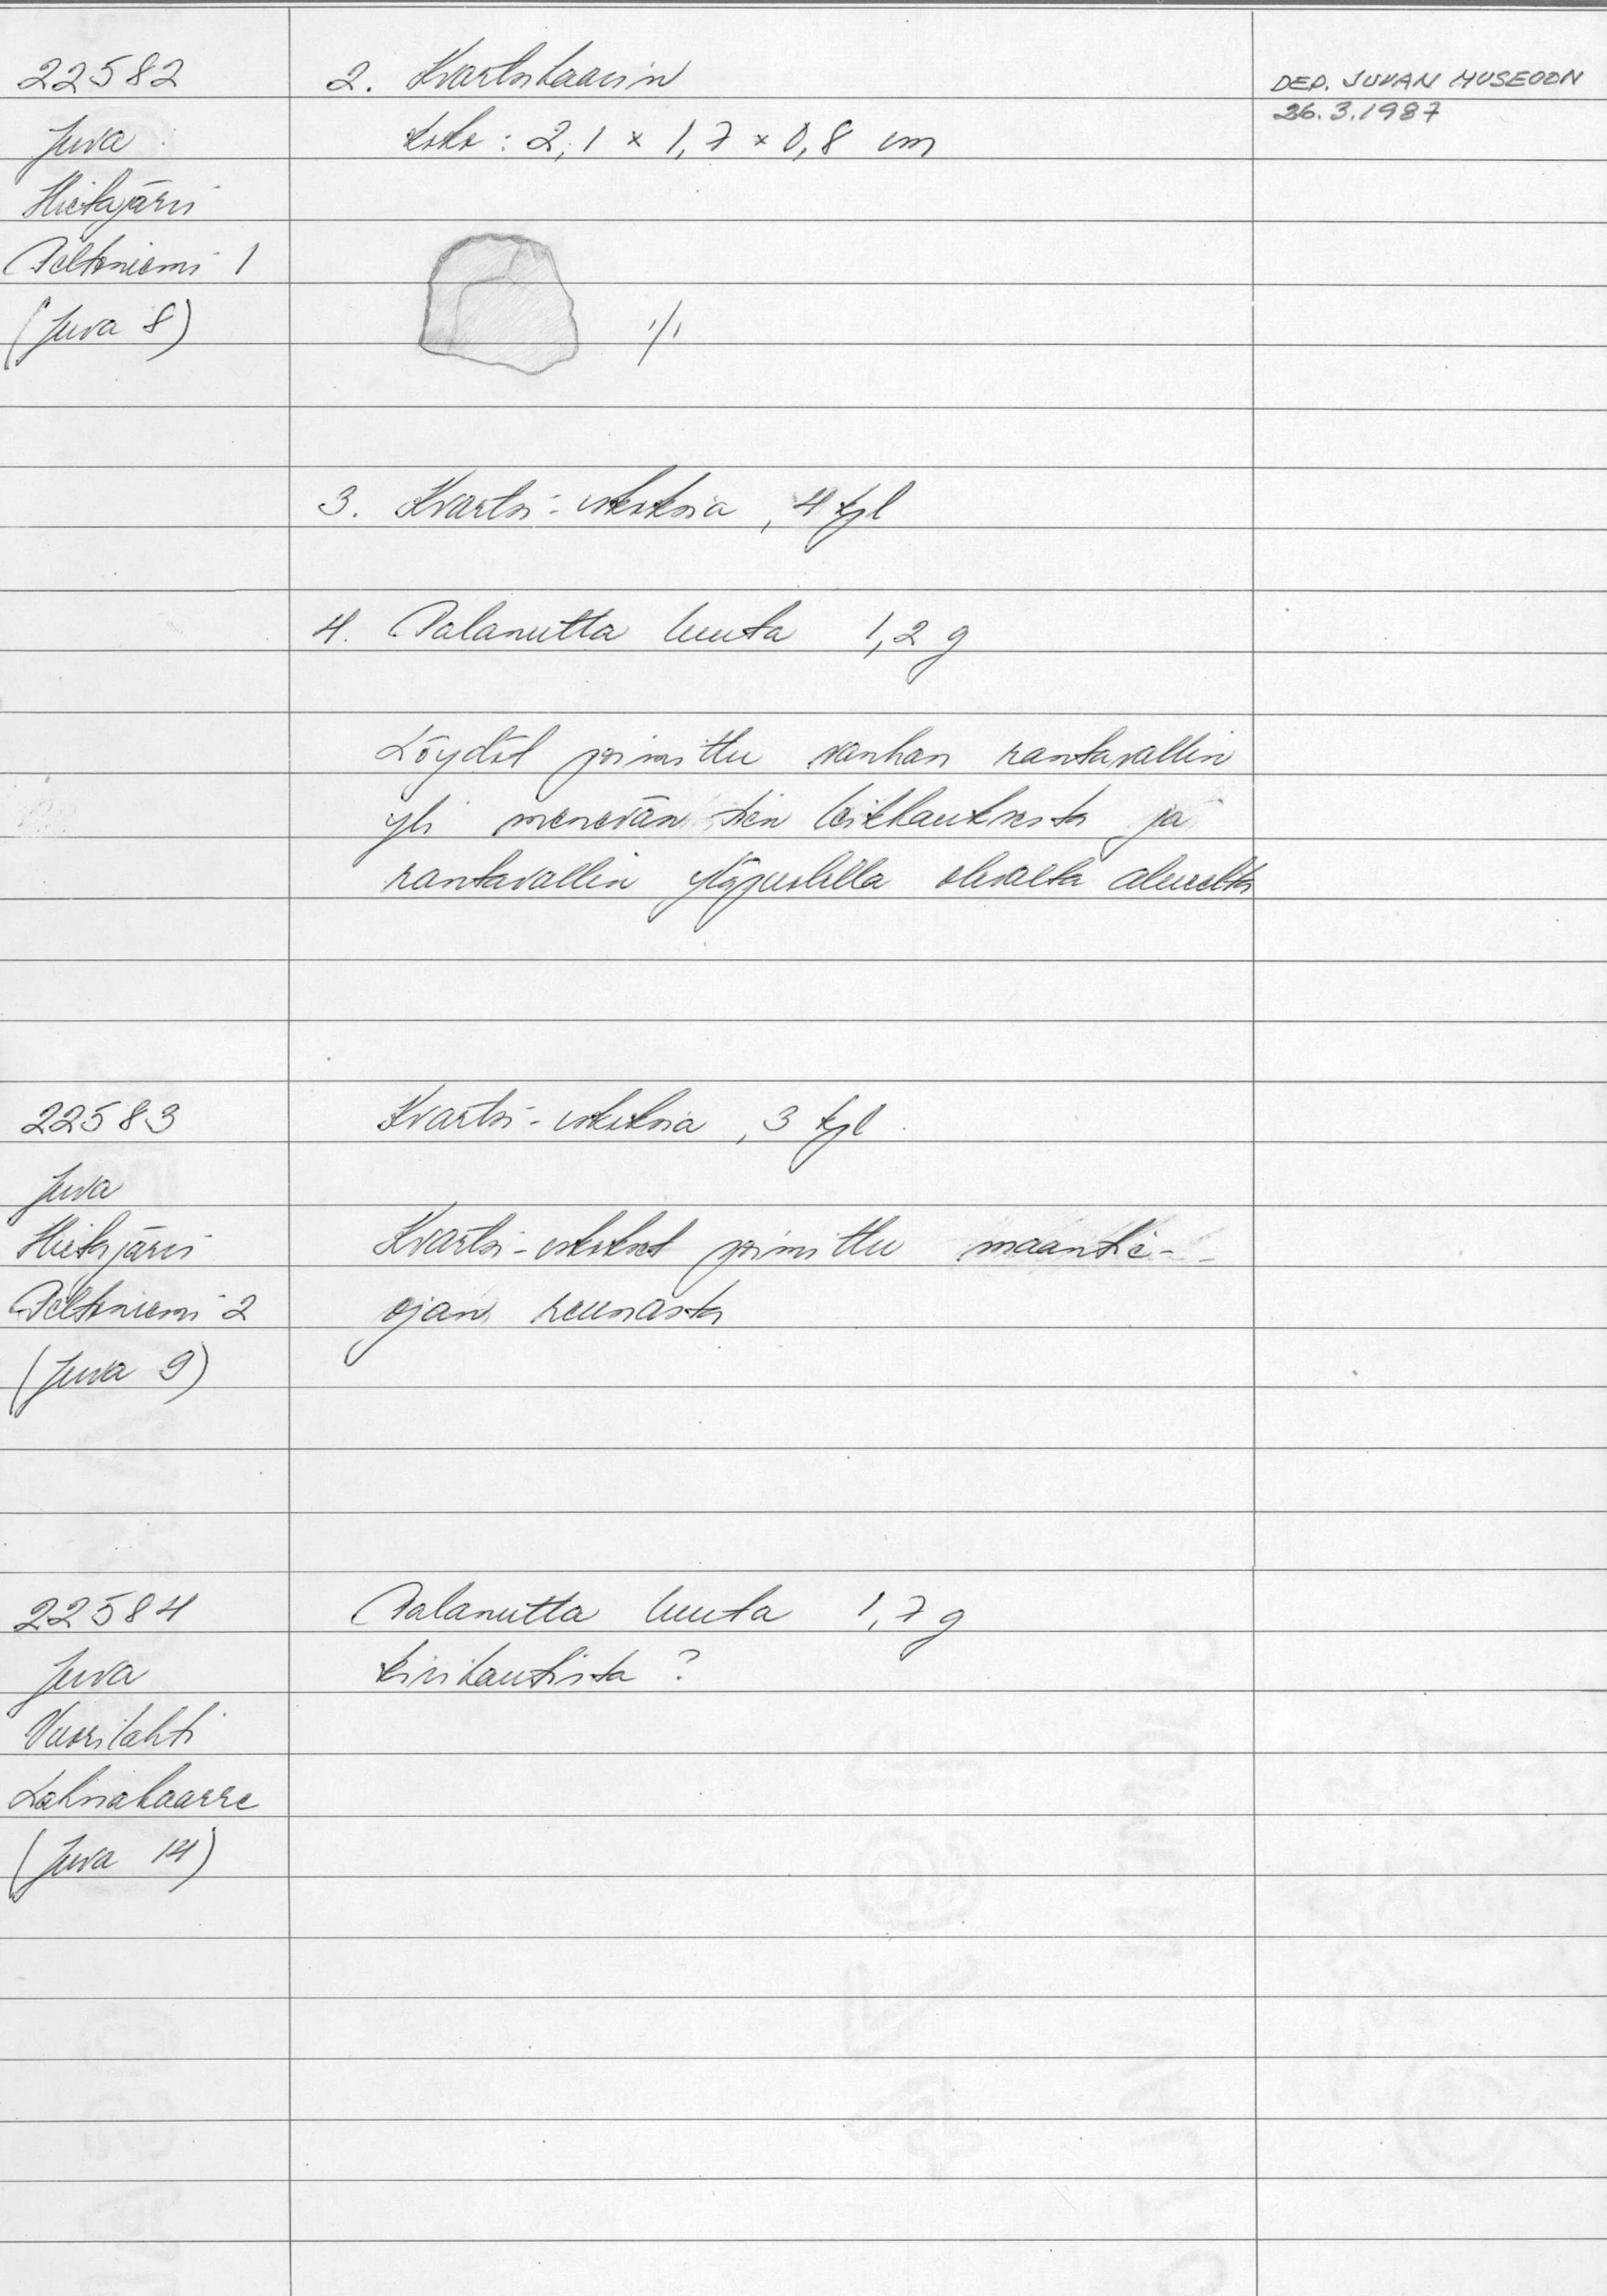 22582
Juva
Hietajärvi
Peltoniemi 1
(Juva 8)
2. Kvartsikaavin
koko : 2,1 x 1,7 x 0,8 cm
1/1
DEP. JUVAN MUSEOON
26.3.1987
3. Kvartsi-iskoksia, 4 kpl
4. Palanutta luuta 1,2 g
Löydöt poimittu vanhan rantavallin
yli menevän tien leikkauksesta ja
rantavallin yläpuolella olevalta alueelta
22583
Juva
Hietajärvi
Peltoniemi 2
(Juva 9)
Kvartsi-iskoksia, 3 kpl
Kvartsi-iskokset poimittu maantie-
ojan reunasta
22584
Juva
Vuorilahti
Lahnakaarre
(Juva 14)
Palanutta luuta 1,7 g
kivikautista ?